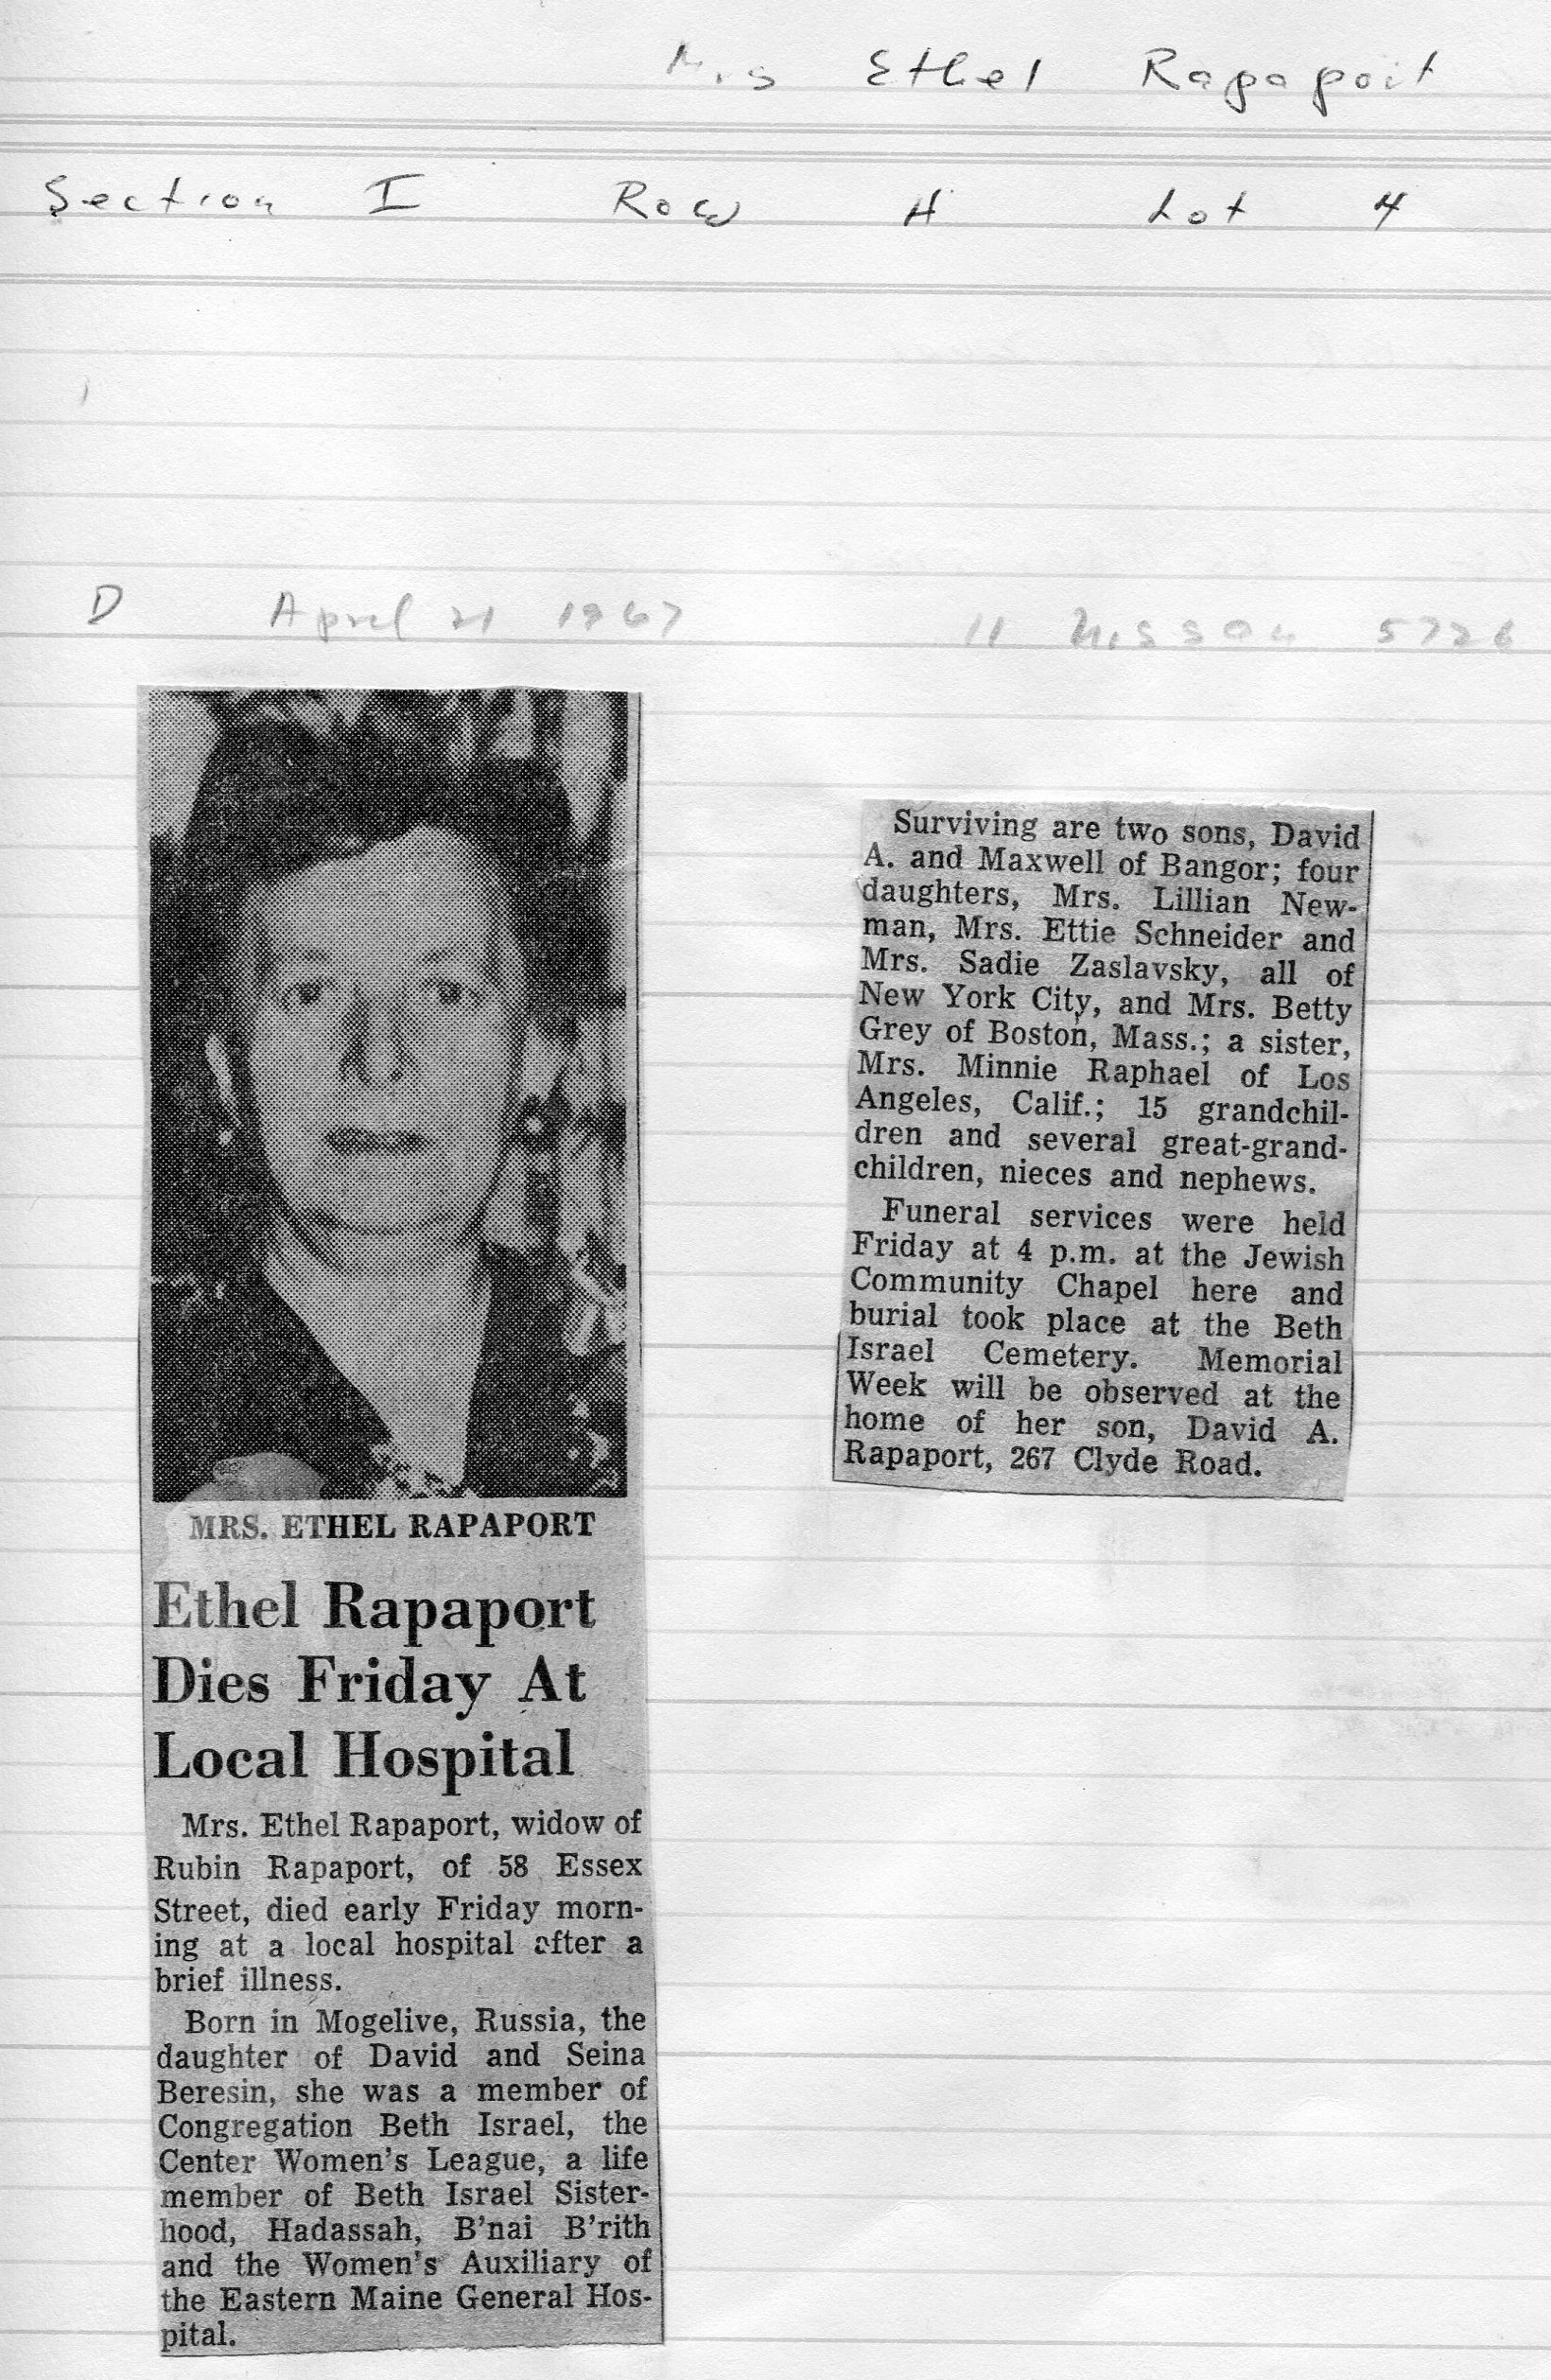 Mrs Ethel Rapaport
Section I Row H Lot 4
D April 21 1967 11 Nissan 5726
MRS. ETHEL RAPAPORT
Ethel Rapaport
Dies Friday At
Local Hospital
Mrs. Ethel Rapaport, widow of
Rubin Rapaport, of 58 Essex
Street, died early Friday morn-
ing at a local hospital after a
brief illness.
Born in Mogelive, Russia, the
daughter of David and Seina
Beresin, she was a member of
Congregation Beth Israel, the
Center Women's League, a life
member of Beth Israel Sister-
hood, Hadassah, B'nai B'rith
and the Women's Auxiliary of
the Eastern Maine General Hos-
pital.
Surviving are two sons, David
A. and Maxwell of Bangor; four
daughters, Mrs. Lillian New-
man, Mrs. Ettie Schneider and
Mrs. Sadie Zaslavsky, all of
New York City, and Mrs. Betty
Grey of Boston, Mass.; a sister,
Mrs. Minnie Raphael of Los
Angeles, Calif.; 15 grandchil-
dren and several great-grand-
children, nieces and nephews.
Funeral services were held
Friday at 4 p.m. at the Jewish
Community Chapel here and
burial took place at the Beth
Israel Cemetery. Memorial
Week will be observed at the
home of her son, David A.
Rapaport, 267 Clyde Road.